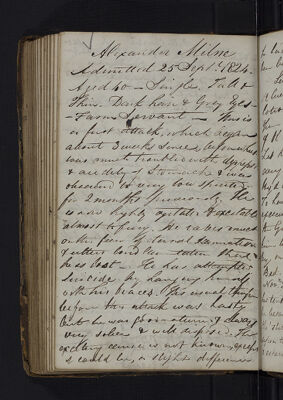 Alexander Milne
Admitted 25 Sept. 1824.
Aged 40 — Single, Tall &
Thin. Dark hair & Grey Eyes —
— Farm Servant — This is
a first attack, which began
about 3 weeks since, before which he
was much troubled with dyspepsia
& acidity of Stomach & was
observed to very low spirited
for 2 months previously. He
is now highly agitated & excitable
almost to fury. He raves much
on the fear of eternal damnation
& utters loud
he is lost. He has attempted
suicide by hanging himself
with his braces. His usual temper
before this attack was hasty
but he was good natured & always
very sober & well disposed. The
exciting cause is not known, except
it could be, a slight difference